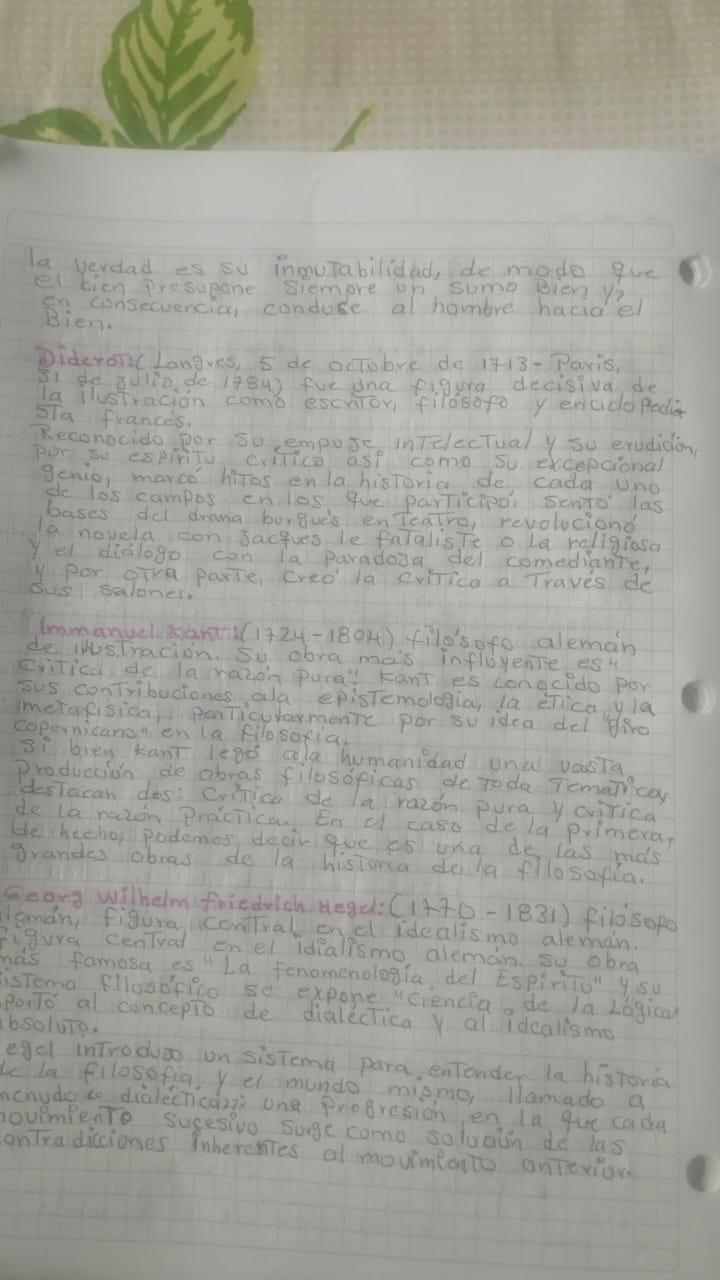 la verdad es su inmutabilidad, de modo que
el bien presupone siempre un sumo Bien y,
en consecuencia, conduse al hombre hacia el
Bien.
Diderot:(Langres, 5 de octobre de 1713- Paris,
31 de Julio de 1784) fue una figura decisiva de
la ilustración como escritor, filósofo y enciclopedi
sta francés.
Reconocido por su empuje intelectual y su erudición,
por su espiritu critico asi como su excepcional
genio, marcó hitos en la historia de cada uno
de los campos en los que participó: sentó las
bases del drana burgués en Teatro, revolucionó
la novela con Jacques le fataliste o La religiosa
y el diálogo con la Paradoja del comediante,
y por otra parte, creó la critica a Través de
sus salones.
Immanuel Kant:(1724-1804) filósofo alemán
de ilustración. Su obra más influyente es"
Critica de la razón pura" Kant es conocido por
sus contribuciones ala epistemologia, la ética y la
metafisica, particularmente por su idea del "giro
copernicano" en la filosofia.
Si bien Kant legó ala humanidad una vasta
Producción de obras filosóficas de toda Tematicas
destacan dos: Critica de la razón pura y critica
de la razón Práctica. En el caso de la primera,
de hecho, podemos decir que es una de las más
grandes obras de la historia de la filosofía.
Georg Wilhelm friedrich Hegel:(1770-1831) filósofo
lemán, figura central en el idealismo alemán.
figura central en el idialismo alemán. su obra
más famosa es "La fenomenología del Espíritu" y su
istema filosófico se expone "Ciencia de la Lógica"
portó al concepto de dialéctica y al idealismo
bsoluto.
egel introdujo un sistema para entender la historia
de la filosofia y el mundo mismo, llamado a
menudo "dialéctica": una progresión en la que cada
movimiento sucesivo surge como solución de las
ontradicciones inherentes al movimiento anterior.